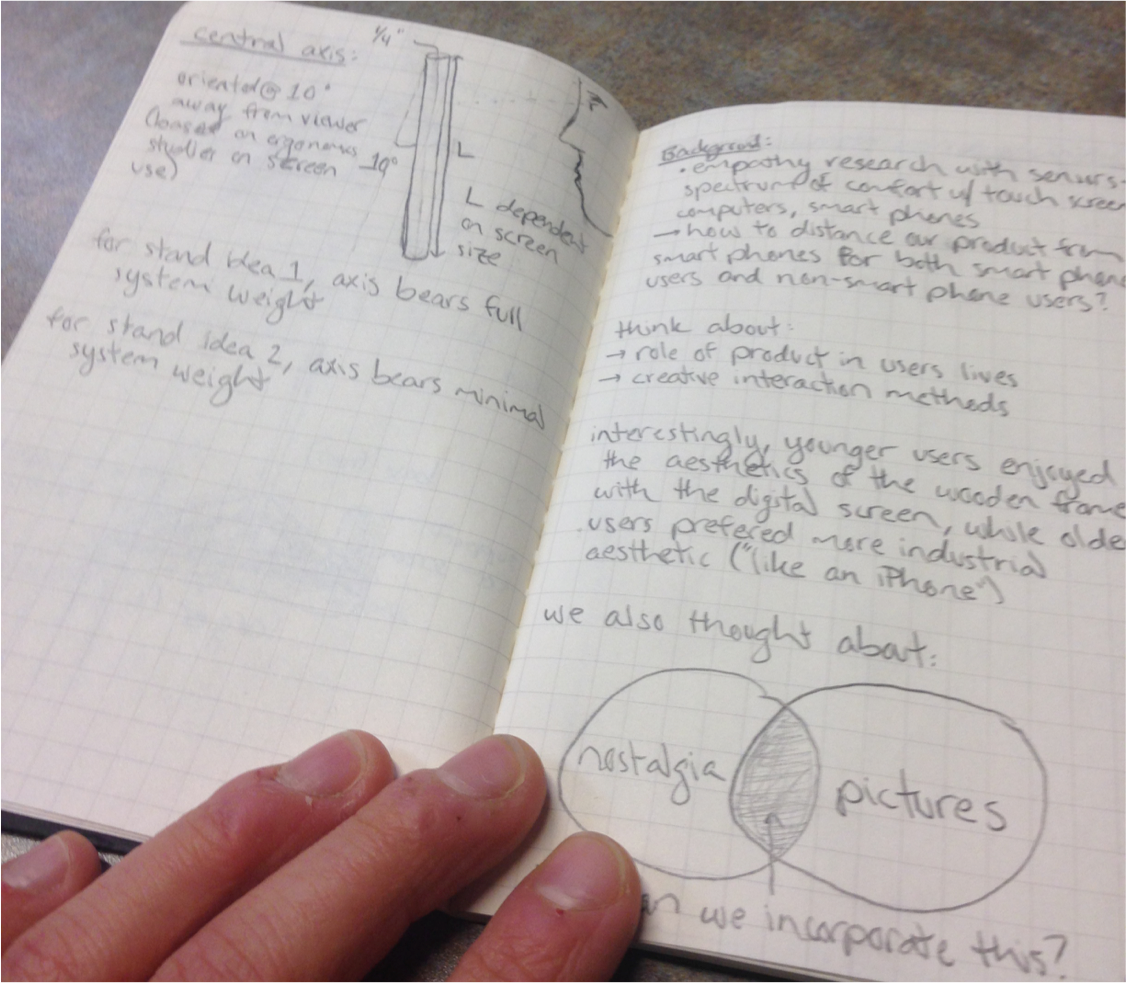 central axis:
1/4"
oriented @ 10°
away from viewer
(based on ergonomics
studies on screen
use)
10°
L
L dependent
on screen
size
for stand idea 1, axis bears full
system weight
for stand idea 2, axis bears minimal
system weight
Background:
• empathy research with seniors-
spectrum of comfort w/ touch screen
computers, smart phones
→ how to distance our product from
smart phones for both smart phone
users and non-smart phone users?
think about:
→ role of product in users lives
→ creative interaction methods
interestingly, younger users enjoyed
the aesthetics of the wooden frame
with the digital screen, while olde
users prefered more industrial
aesthetic ("like an iPhone")
we also thought about:
nostalgia
pictures
an we incorporate this?